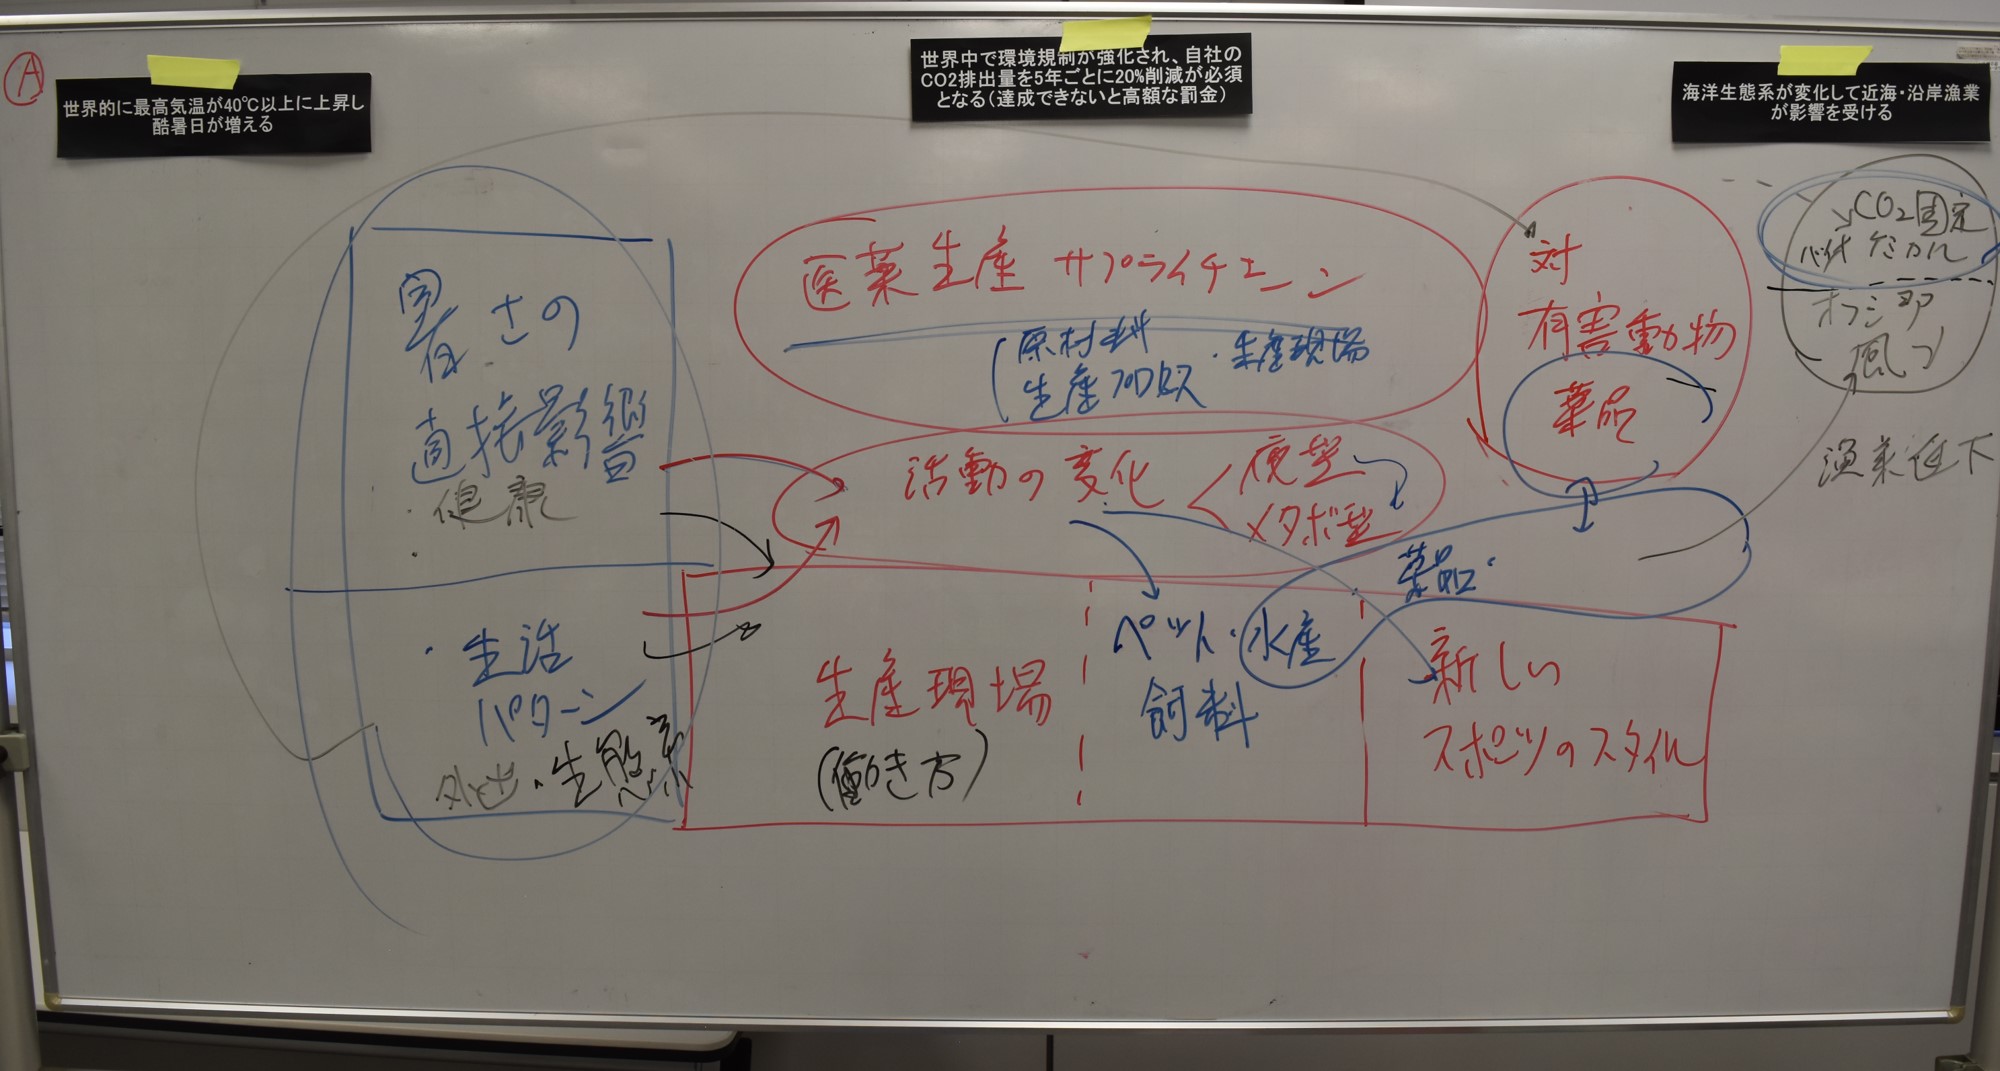 A
世界的に最高気温が40℃以上に上昇し
酷暑日が増える
世界中で環境規制が強化され、自社の
CO2排出量を5年ごとに20%削減が必須
となる(達成できないと高額な罰金)
海洋生態系が変化して近海・沿岸漁業
が影響を受ける
暑さの
直接影響
・健康
・
・生活
パターン
外出・生態系
医薬生産サプライチェーン
(原材料・生産現場
生産プロセス
活動の変化
夜型
メタボ型
生産現場
(働き方)
ペット・水産
飼料
薬品・
新しい
スポーツのスタイル
対
有害動物
薬品
CO2固定
バイオケミカル
オフショア
風力
漁業低下